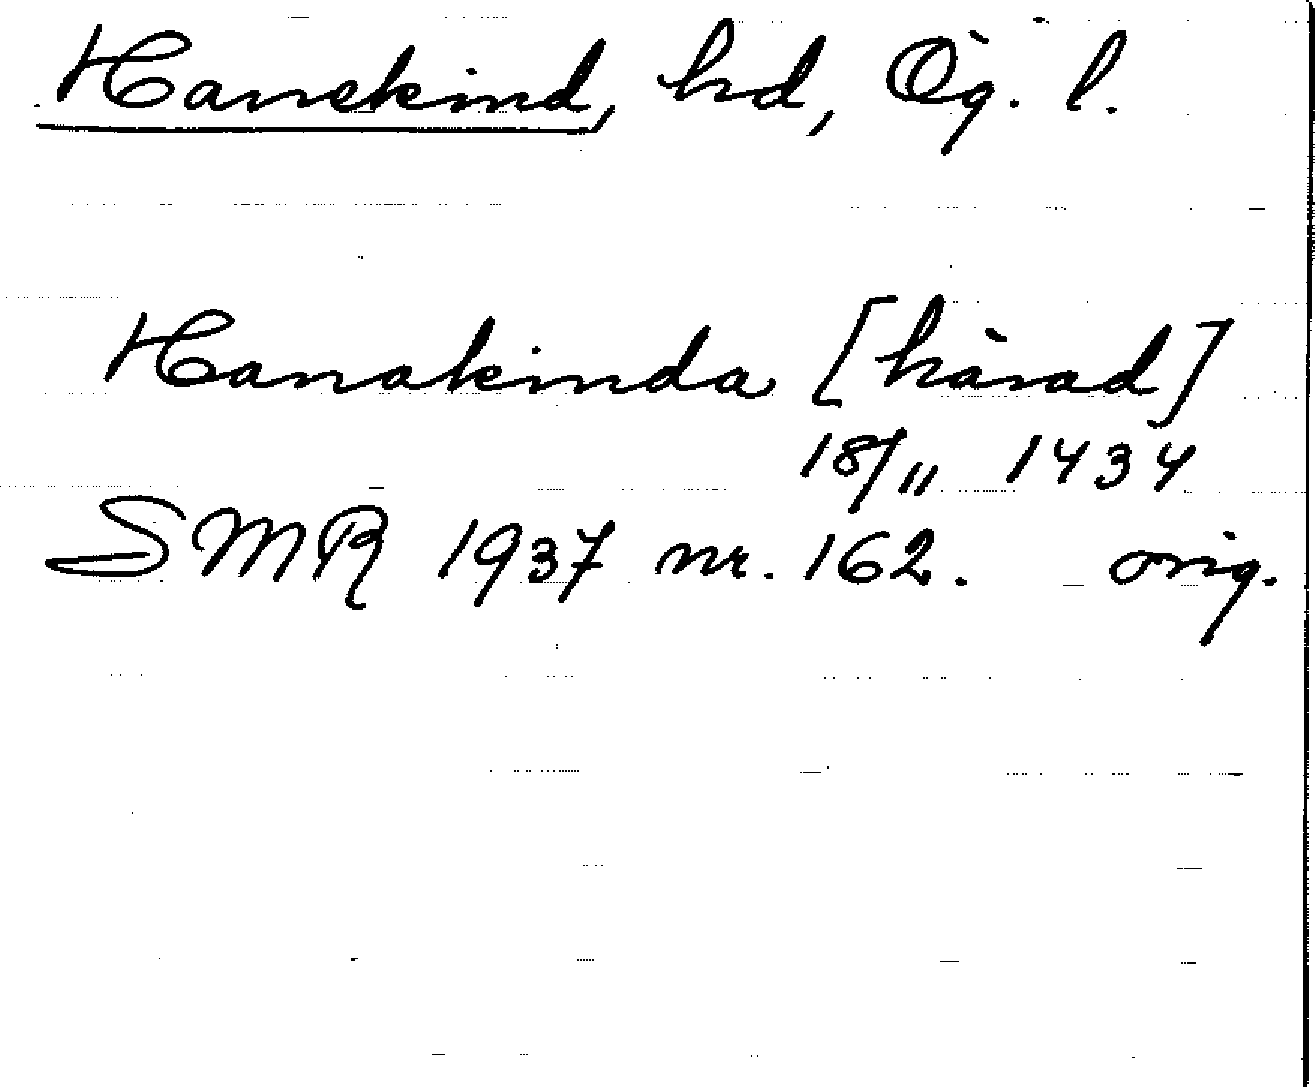 Hanekind, hd, Ög. l.
Hanakinda [härad]
18/11 1434
SMR 1937 nr. 162. orig.